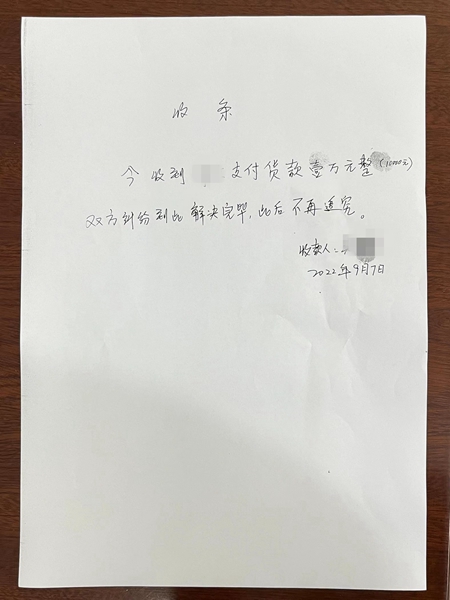 收条
今收到 支付货款壹万元整(10000元)
双方纠纷到此解决完毕,此后不再追究。
收款人:
2022年9月7日